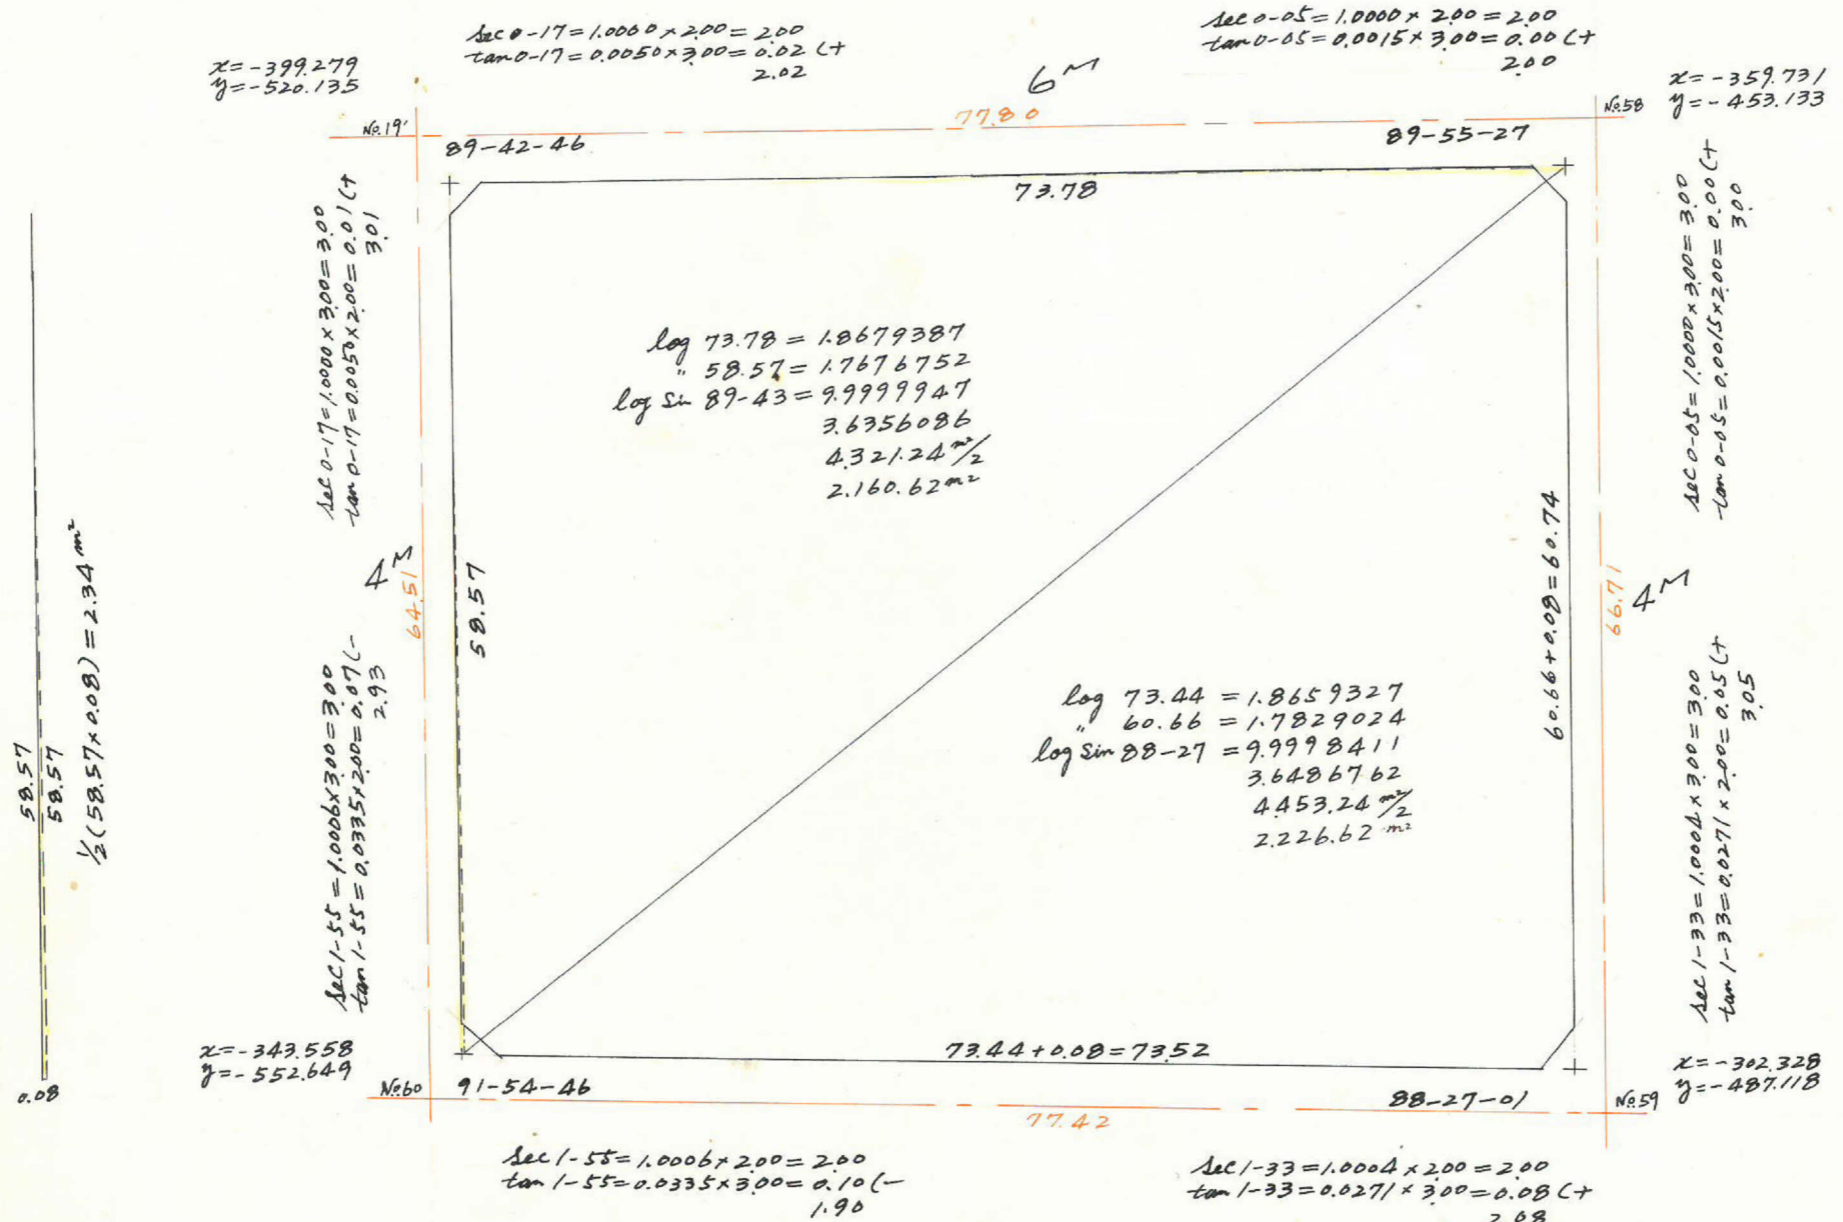 sec 0-17=1.0000×2.00=2.00
tan 0-17=0.0050×3.00=0.02 (+
2.02
sec 0-05=1.0000×2.00=2.00
tan 0-05=0.0015×3.00=0.00 (+
2.00
x=-399.279
y=-520.135
6M
x=-359.731
y=-453.133
No.19'
77.80
No.58
89-42-46
89-55-27
73.78
sec 0-17=1.0000×3.00=3.00
tan 0-17=0.0050×2.00=0.01 (+
3.01
sec 0-05=1.0000×3.00=3.00
tan 0-05=0.0015×2.00=0.00 (+
3.00
log 73.78=1.8679387
" 58.57=1.7676752
log sin 89-43=9.9999947
3.6356086
4.321.24 m²/2
2.160.62 m²
4M
64.51
58.57
60.66+0.08=60.74
66.71
4M
58.57
58.57
½(58.57×0.08)=2.34 m²
0.08
log 73.44=1.8659327
" 60.66=1.7829024
log sin 88-27=9.9998411
3.6486762
4.453.24 m²/2
2.226.62 m²
sec 1-55=1.0006×3.00=3.00
tan 1-55=0.0335×2.00=0.07 (-
2.93
sec 1-33=1.0004×3.00=3.00
tan 1-33=0.0271×2.00=0.05 (+
3.05
x=-343.558
y=-552.649
73.44+0.08=73.52
x=-302.328
y=-487.118
No.60
91-54-46
88-27-01
No.59
77.42
sec 1-55=1.0006×2.00=2.00
tan 1-55=0.0335×3.00=0.10 (-
1.90
sec 1-33=1.0004×2.00=2.00
tan 1-33=0.0271×3.00=0.08 (+
2.08